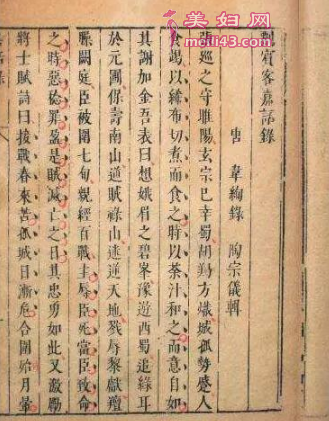 美妇网
劉賓客嘉話錄
唐 韋絢錄 陶宗儀輯
張巡之守睢陽玄宗已幸蜀胡羯方熾城孤勢蹙人
食竭以紙布切煮而食之時以茶汁和之而意自如
其謝加金吾表曰想娥眉之碧峯豫遊西蜀追綠耳
於元圃保壽南山逆賊祿山迷逆天地戮辱黎獻羶
臊闕庭臣被圍七旬親經百戰主辱臣死當臣致命
之時惡稔罪盈是賊滅亡之日其忠勇如此又激勵
將士賦詩曰接戰春來苦孤城日漸危合圍始月暈